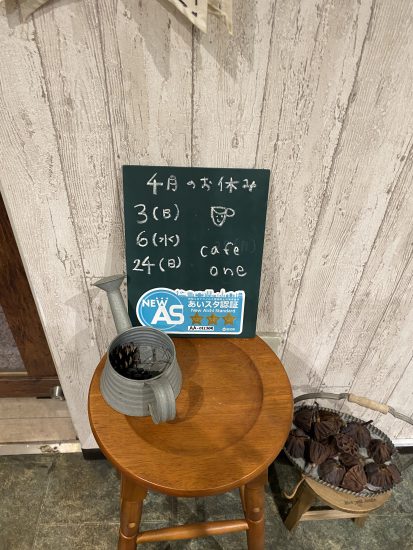 4月のお休み
3(日)
6(水)
24(日)
cafe
one
NEW
AS
あいスタ認証
New Aichi Standard